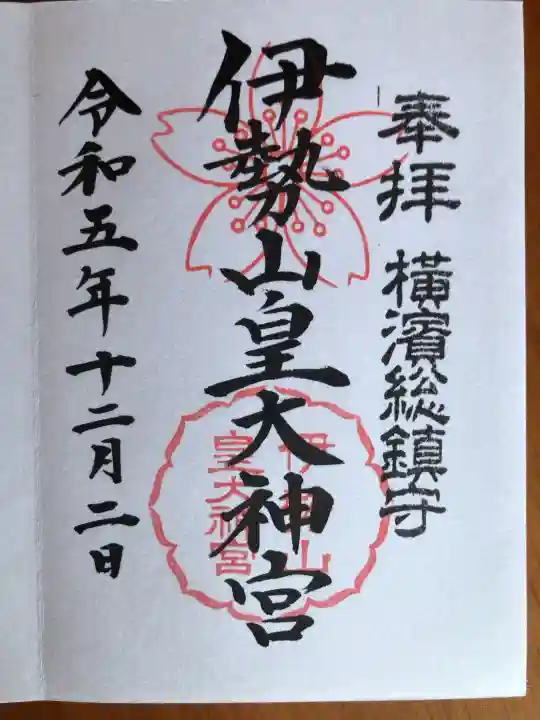 奉拝 橫濱総鎮守
伊勢山皇大神宮
伊勢山
皇大神宮
令和五年十二月二日